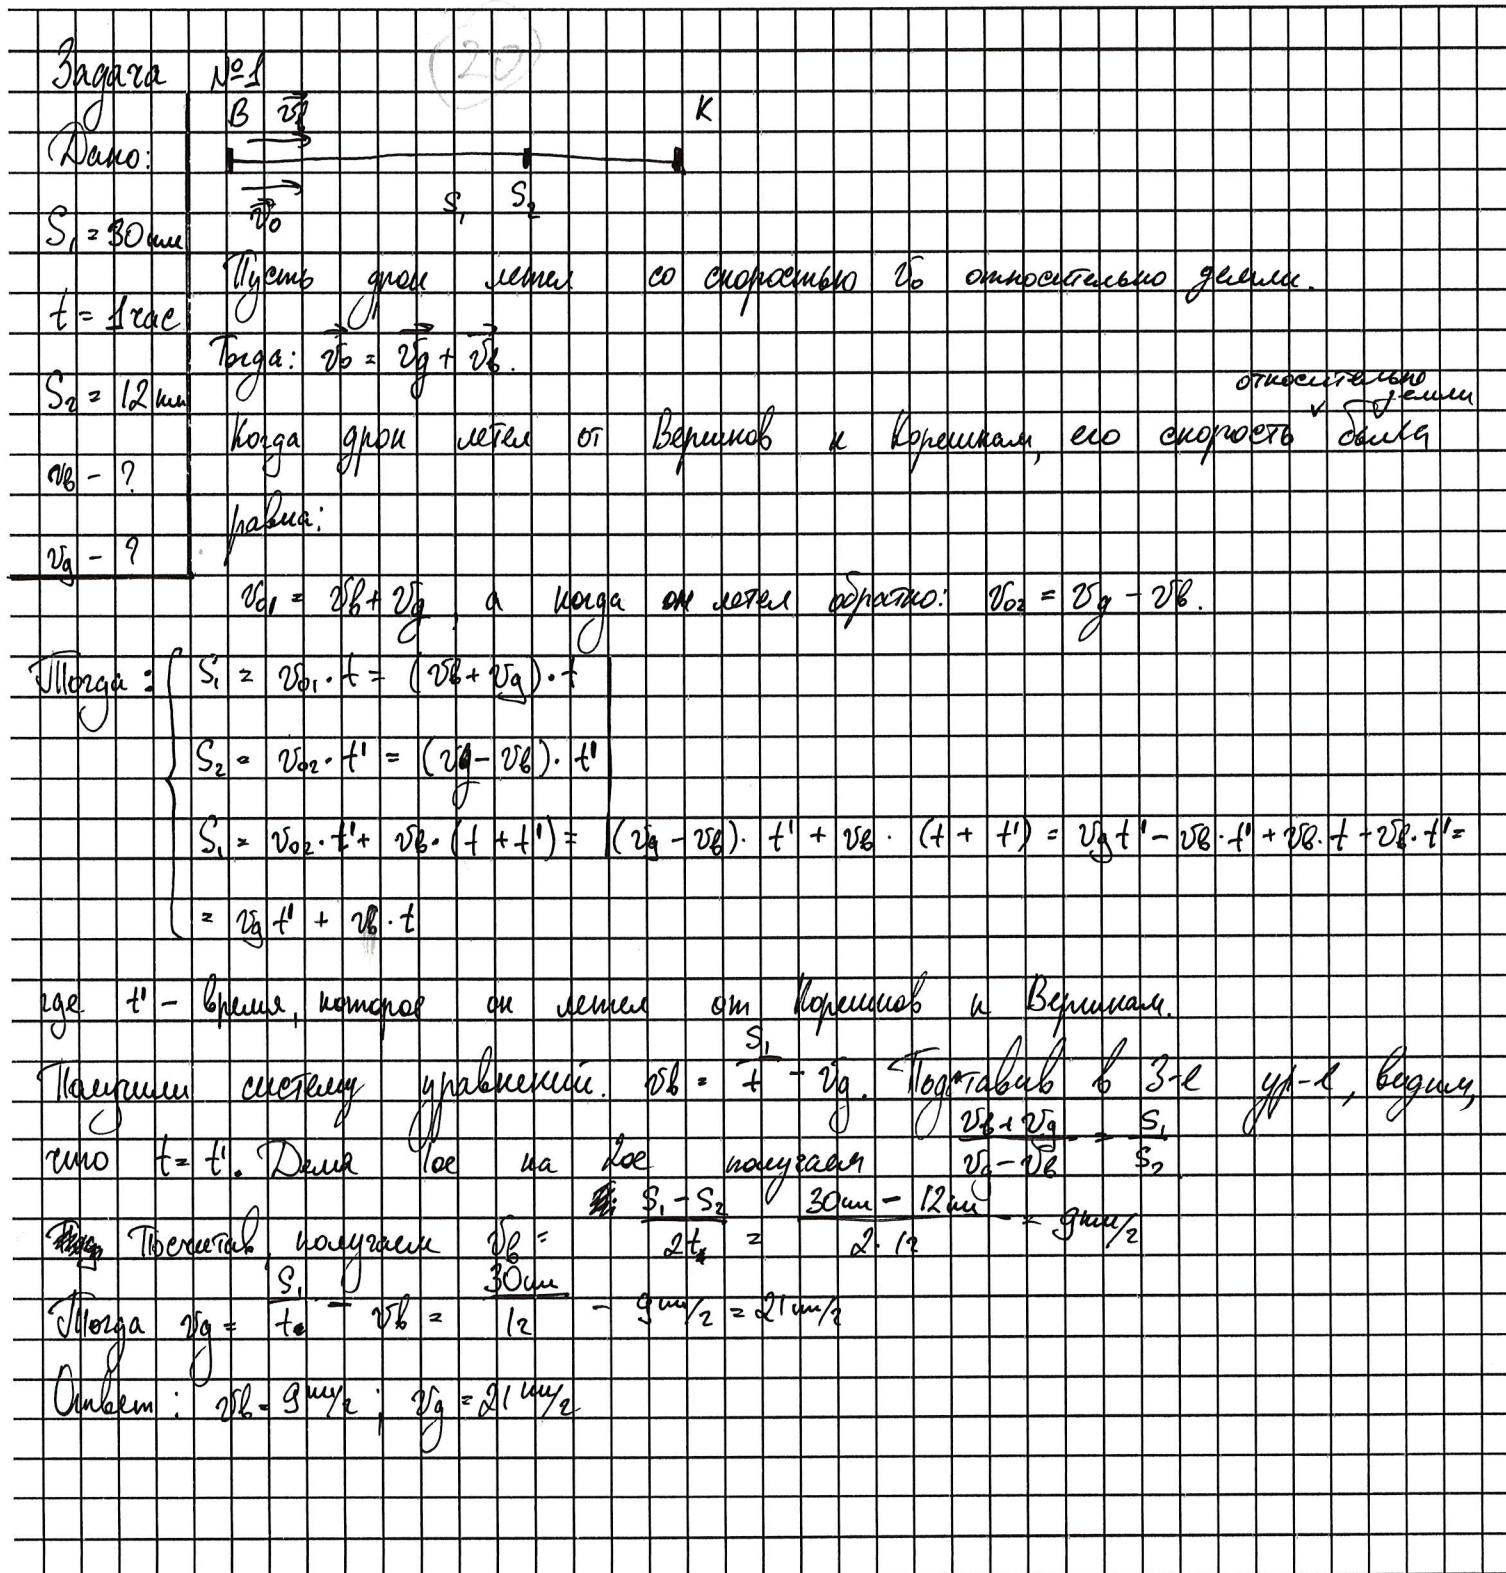 20
Задача №1
B v⃗в K
Дано:
v⃗₀ S₁ S₂
S₁ = 30 км
Пусть дрон летел со скоростью v₀ относительно земли.
t = 1 час
Тогда: v⃗₀ = v⃗g + v⃗в.
S₂ = 12 км
относительно земли
Когда дрон летел от Вершков к Корешкам, его скорость была
vв - ?
равна:
vg - ?
v₀₁ = vв + vg, а когда он летел обратно: v₀₂ = vg - vв.
Тогда: S₁ = v₀₁ · t = (vв + vg) · t
S₂ = v₀₂ · t' = (vg - vв) · t'
S₁ = v₀₂ · t' + vв · (t + t') = (vg - vв) · t' + vв · (t + t') = vg t' - vв · t' + vв · t + vв · t' =
= vg t' + vв · t
где t' - время, которое он летел от Корешков к Вершкам.
Получили систему уравнений. vв = S₁/t - vg. Подставив в 3-е ур-е, видим,
что t = t'. Деля 1ое на 2ое получаем (vв + vg)/(vg - vв) = S₁/S₂
Посчитав, получаем vв = (S₁ - S₂)/2t = (30км - 12км)/(2 · 1г) = 9км/г
Тогда vg = S₁/t - vв = 30км/1г - 9км/г = 21км/г
Ответ: vв = 9км/г; vg = 21км/г